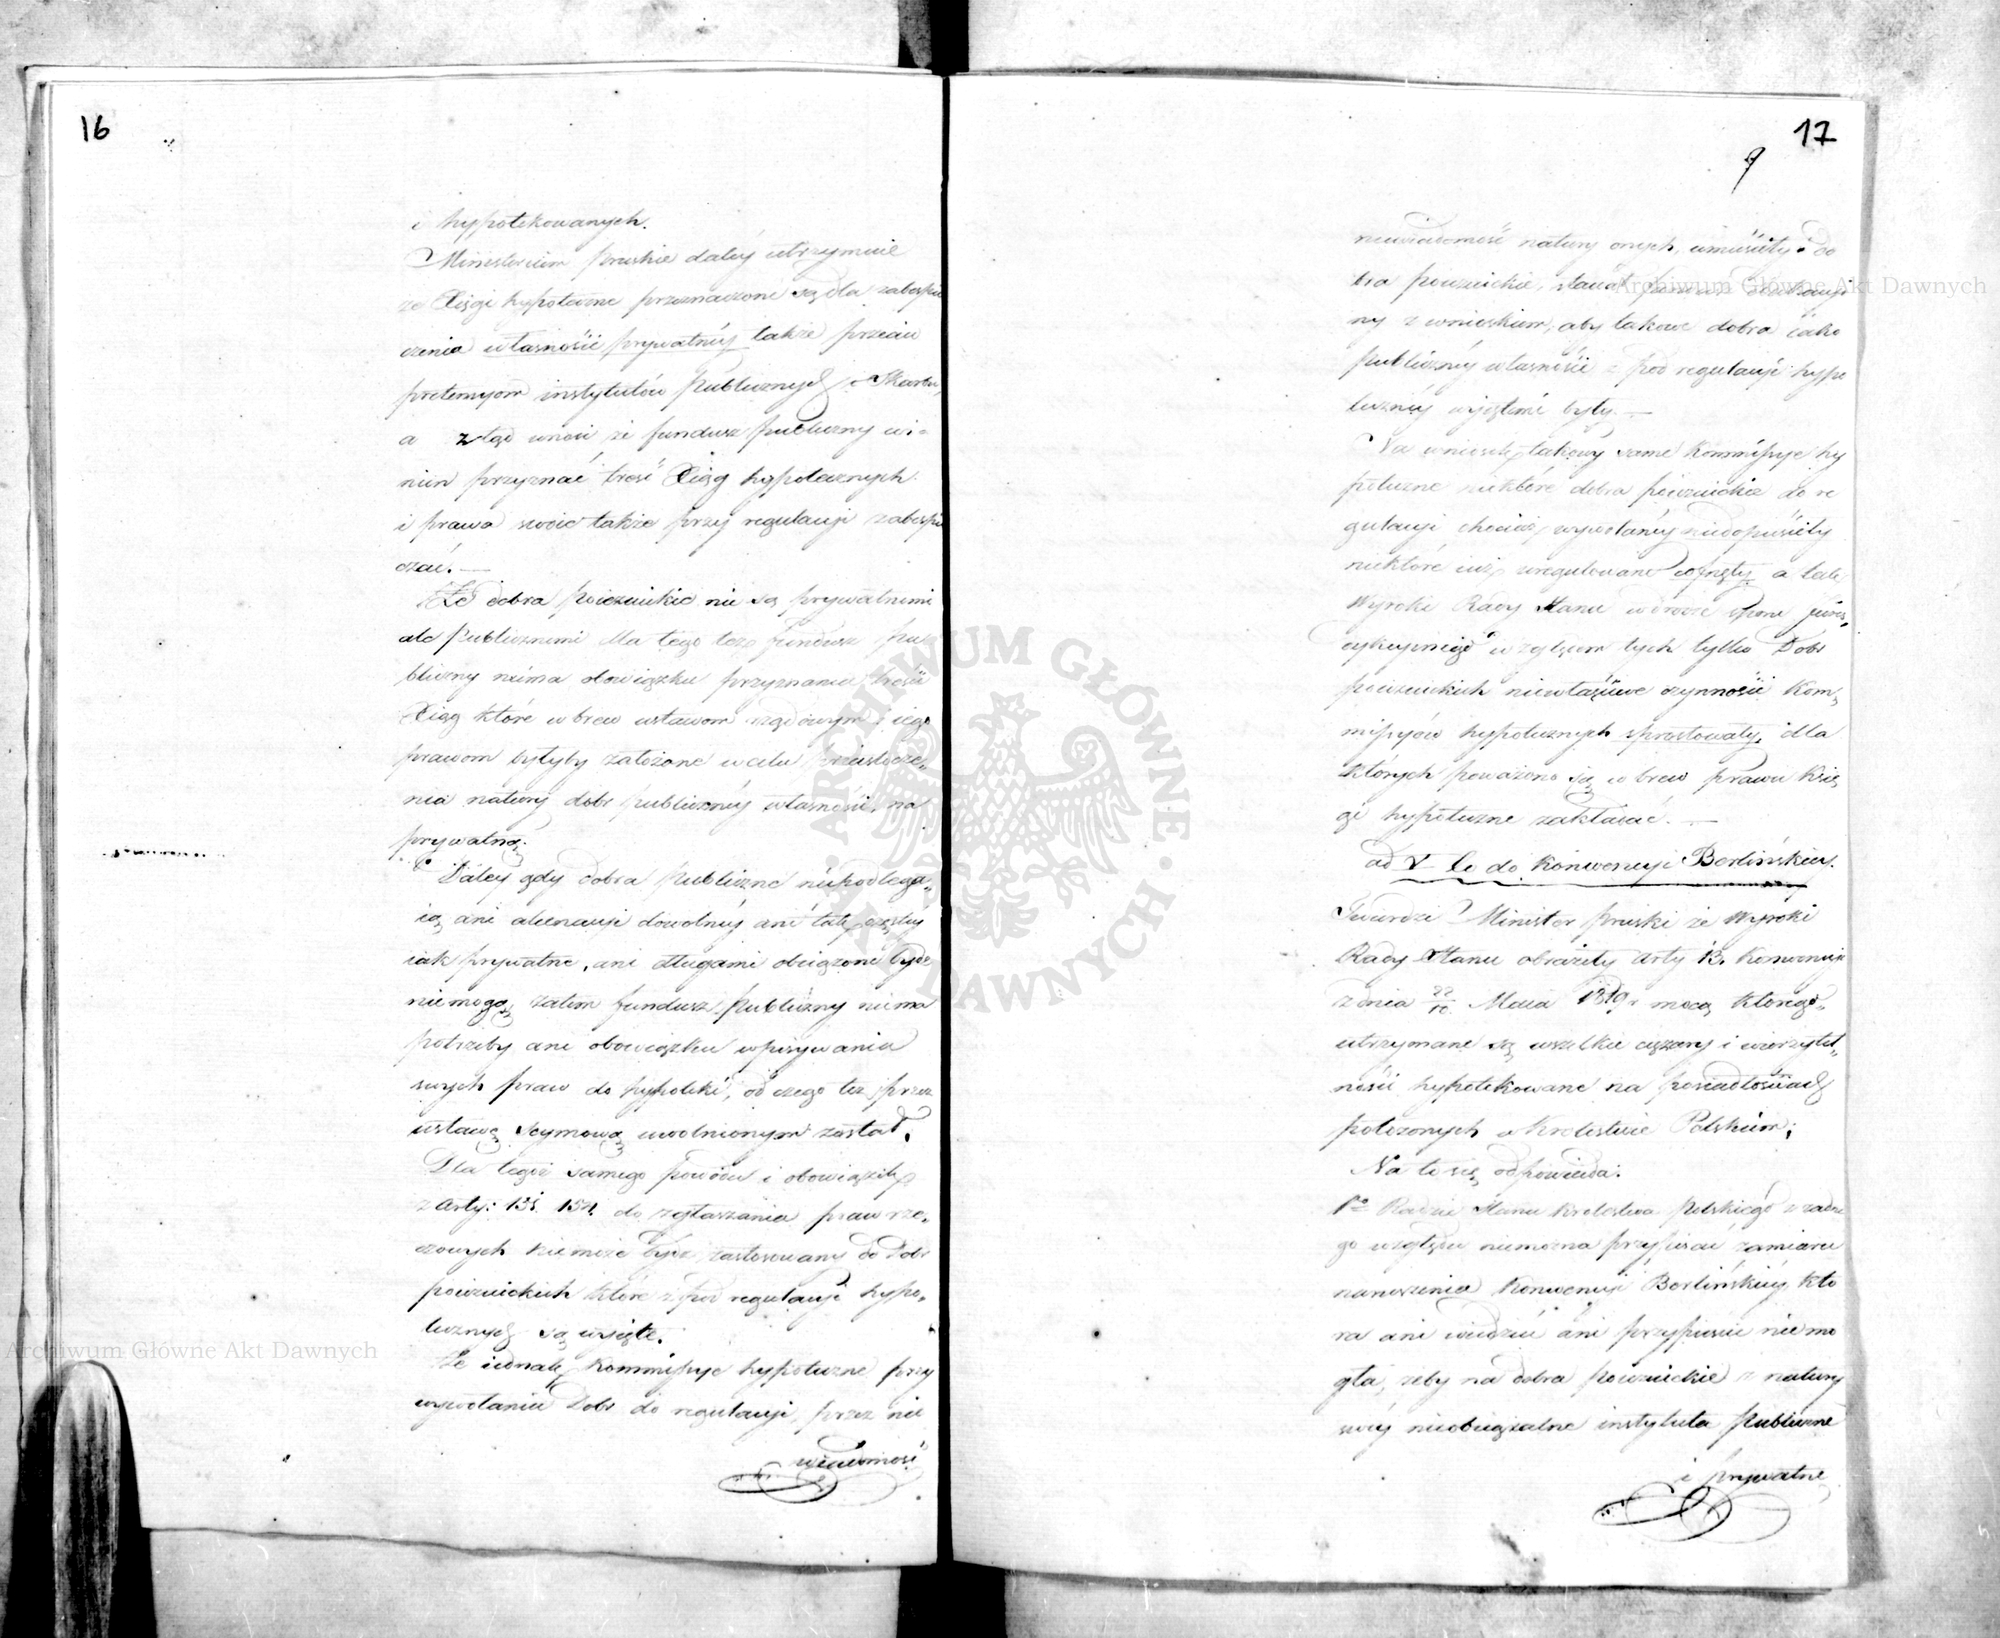 16
i hypotekowanych.
Ministerium pruskie daléy utrzymuie
że Xięgi hypoteczne przeznaczone są dla zabespie
czenia własności prywatnéy także przeciw
pretensyom instytutów publicznych i Skarbu,
a ztąd wnosi że fundusz publiczny wi-
nien przyznać treść Xiąg hypotecznych
i prawa swoie także przy regulacyi zabespie
czać. —
Że dobra poiezuickie nie są prywatnemi
ale publicznemi dla tego też fundusz pu
bliczny niéma obowiązku przyznania treści
Xiąg które wbrew ustawom rządowym i iego
prawom byłyby założone w celu przeistocze-
nia natury dobr publicznéy własności, na
prywatną.
Daléy gdy dobra publiczne niepodlega-
ią ani alienacyi dowolnéy ani téż częstéy
iak prywatne, ani długami obciążone bydź
niemogą, zatém fundusz publiczny niema
potrzeby ani obowiązku wpisywania
swych praw do hypoteki, od czego też przez
ustawę Seymową uwolnionym został.
Dla tegoż samego powodu i obowiązek
z arty: 131. 132. do zgłaszania praw rze-
czowych niemoże bydź zastosowany do dobr
poiezuickich które z pod regulacyi hypo-
tecznych są wyięte.
Że iednak Kommissye hypoteczne przy
wywołaniu Dobr do regulacyi, przez nie
wiadomość
17
9
niewiadomość natury onych, umieściły i do
bra poiezuickie,
ny z wnioskiem, aby takowe dobra iako
publicznéy własności z pod regulacyi hypo
tecznéy wyjętemi były. —
Na wniosek takowy same Kommissye hy
poteczne niektóre dobra poiezuickie do re
gulacyi chociaż wywołanéy niedopuściły
niektóre iuż uregulowane cofnęły a
Wyroki Rady Stanu w drodze sporu juris-
dykcyinego względem tych tylko Dobr
poiezuickich niewłaściwe czynności Kom-
missyów hypotecznych sprostowały, dla
których poważono się wbrew prawu Xię
gi hypoteczne zakładać. —
ad V Co do Konwencyi Berlińskiéy.
Twierdzi Minister pruski że Wyroki
Rady Stanu obraziły Arty 13. Konwencyi
z dnia 22/10. Maia 1819 r mocą którego
utrzymane są wszelkie ciężary i wierzytel-
ności hypotekowane na posiadłościach
położonych w Królestwie Polskiém;
Na to się odpowiada:
1o Radzie Stanu Królestwa Polskiégo z żadne
go względu niemożna przypisać zamiaru
naruszenia Konwencyi Berlińskiéy, któ
ra ani wiedzieć ani przypuścić niemo
gła, żeby na dobra poiezuickie z natury
swéy nieobciążalne instytuta publiczne
i prywatne
Archiwum Główne Akt Dawnych
Archiwum Główne Akt Dawnych
ARCHIWUM GŁÓWNE AKT DAWNYCH